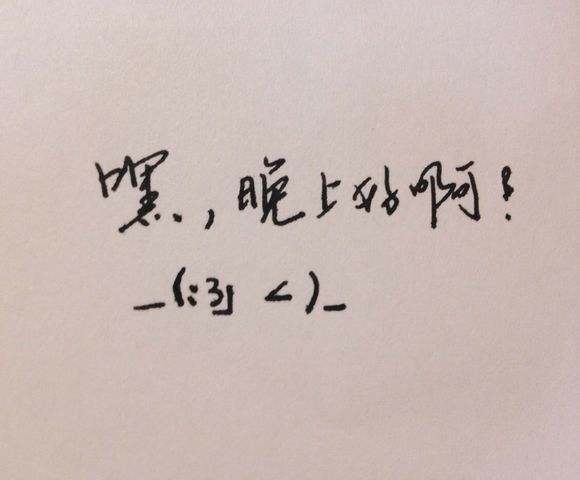 嘿，晚上好啊！
_(:3」<)_